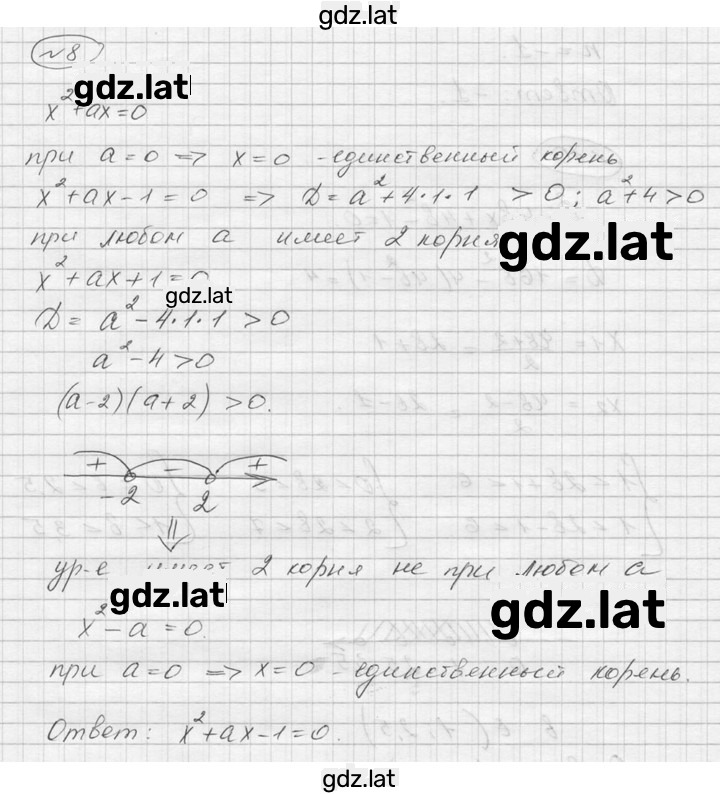 gdz.lat
№8
gdz.lat
x²+ax=0
при a=0 => x=0 - единственный корень
x²+ax-1=0 => D=a²+4·1·1 >0; a²+4>0
при любом a имеет 2 корня
gdz.lat
x²+ax+1=0
gdz.lat
D= a²-4·1·1 >0
a²-4>0
(a-2)(a+2)>0.
+ - +
-2 2
ур-е имеет 2 корня не при любом a
gdz.lat
gdz.lat
x²-a=0.
при a=0 => x=0 - единственный корень.
Ответ: x²+ax-1=0.
gdz.lat